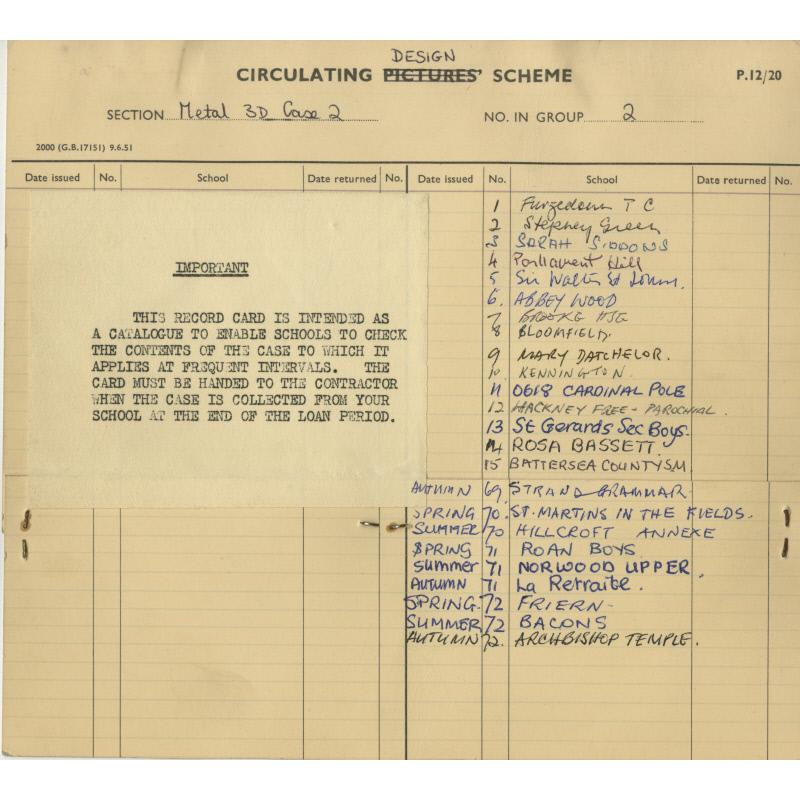 DESIGN
CIRCULATING PICTURES' SCHEME
P.12/20
SECTION Metal 3D Case 2
NO. IN GROUP 2
2000 (G.B.17151) 9.6.51
Date issued No. School Date returned No. Date issued No. School Date returned No.
IMPORTANT
THIS RECORD CARD IS INTENDED AS
A CATALOGUE TO ENABLE SCHOOLS TO CHECK
THE CONTENTS OF THE CASE TO WHICH IT
APPLIES AT FREQUENT INTERVALS. THE
CARD MUST BE HANDED TO THE CONTRACTOR
WHEN THE CASE IS COLLECTED FROM YOUR
SCHOOL AT THE END OF THE LOAN PERIOD.
1 Furzedown T C
2 Stepney Green
3 SARAH SIDDONS
4 Parliament Hill
5 Sir Walter St Johns.
6. ABBEY WOOD
7 BROOKE HSE
8 BLOOMFIELD.
9 MARY DATCHELOR.
10. KENNINGTON.
11 0618 CARDINAL POLE
12 HACKNEY FREE - PAROCHIAL.
13 St Gerards Sec Boys.
14 ROSA BASSETT.
15 BATTERSEA COUNTY SM
AUTUMN 69 STRAND GRAMMAR.
SPRING 70. ST. MARTINS IN THE FIELDS.
SUMMER 70 HILLCROFT ANNEXE
SPRING 71 ROAN BOYS
Summer 71 NORWOOD UPPER.
AUTUMN 71 La Retraite.
SPRING. 72 FRIERN-
SUMMER 72 BACONS
AUTUMN 72. ARCHBISHOP TEMPLE.